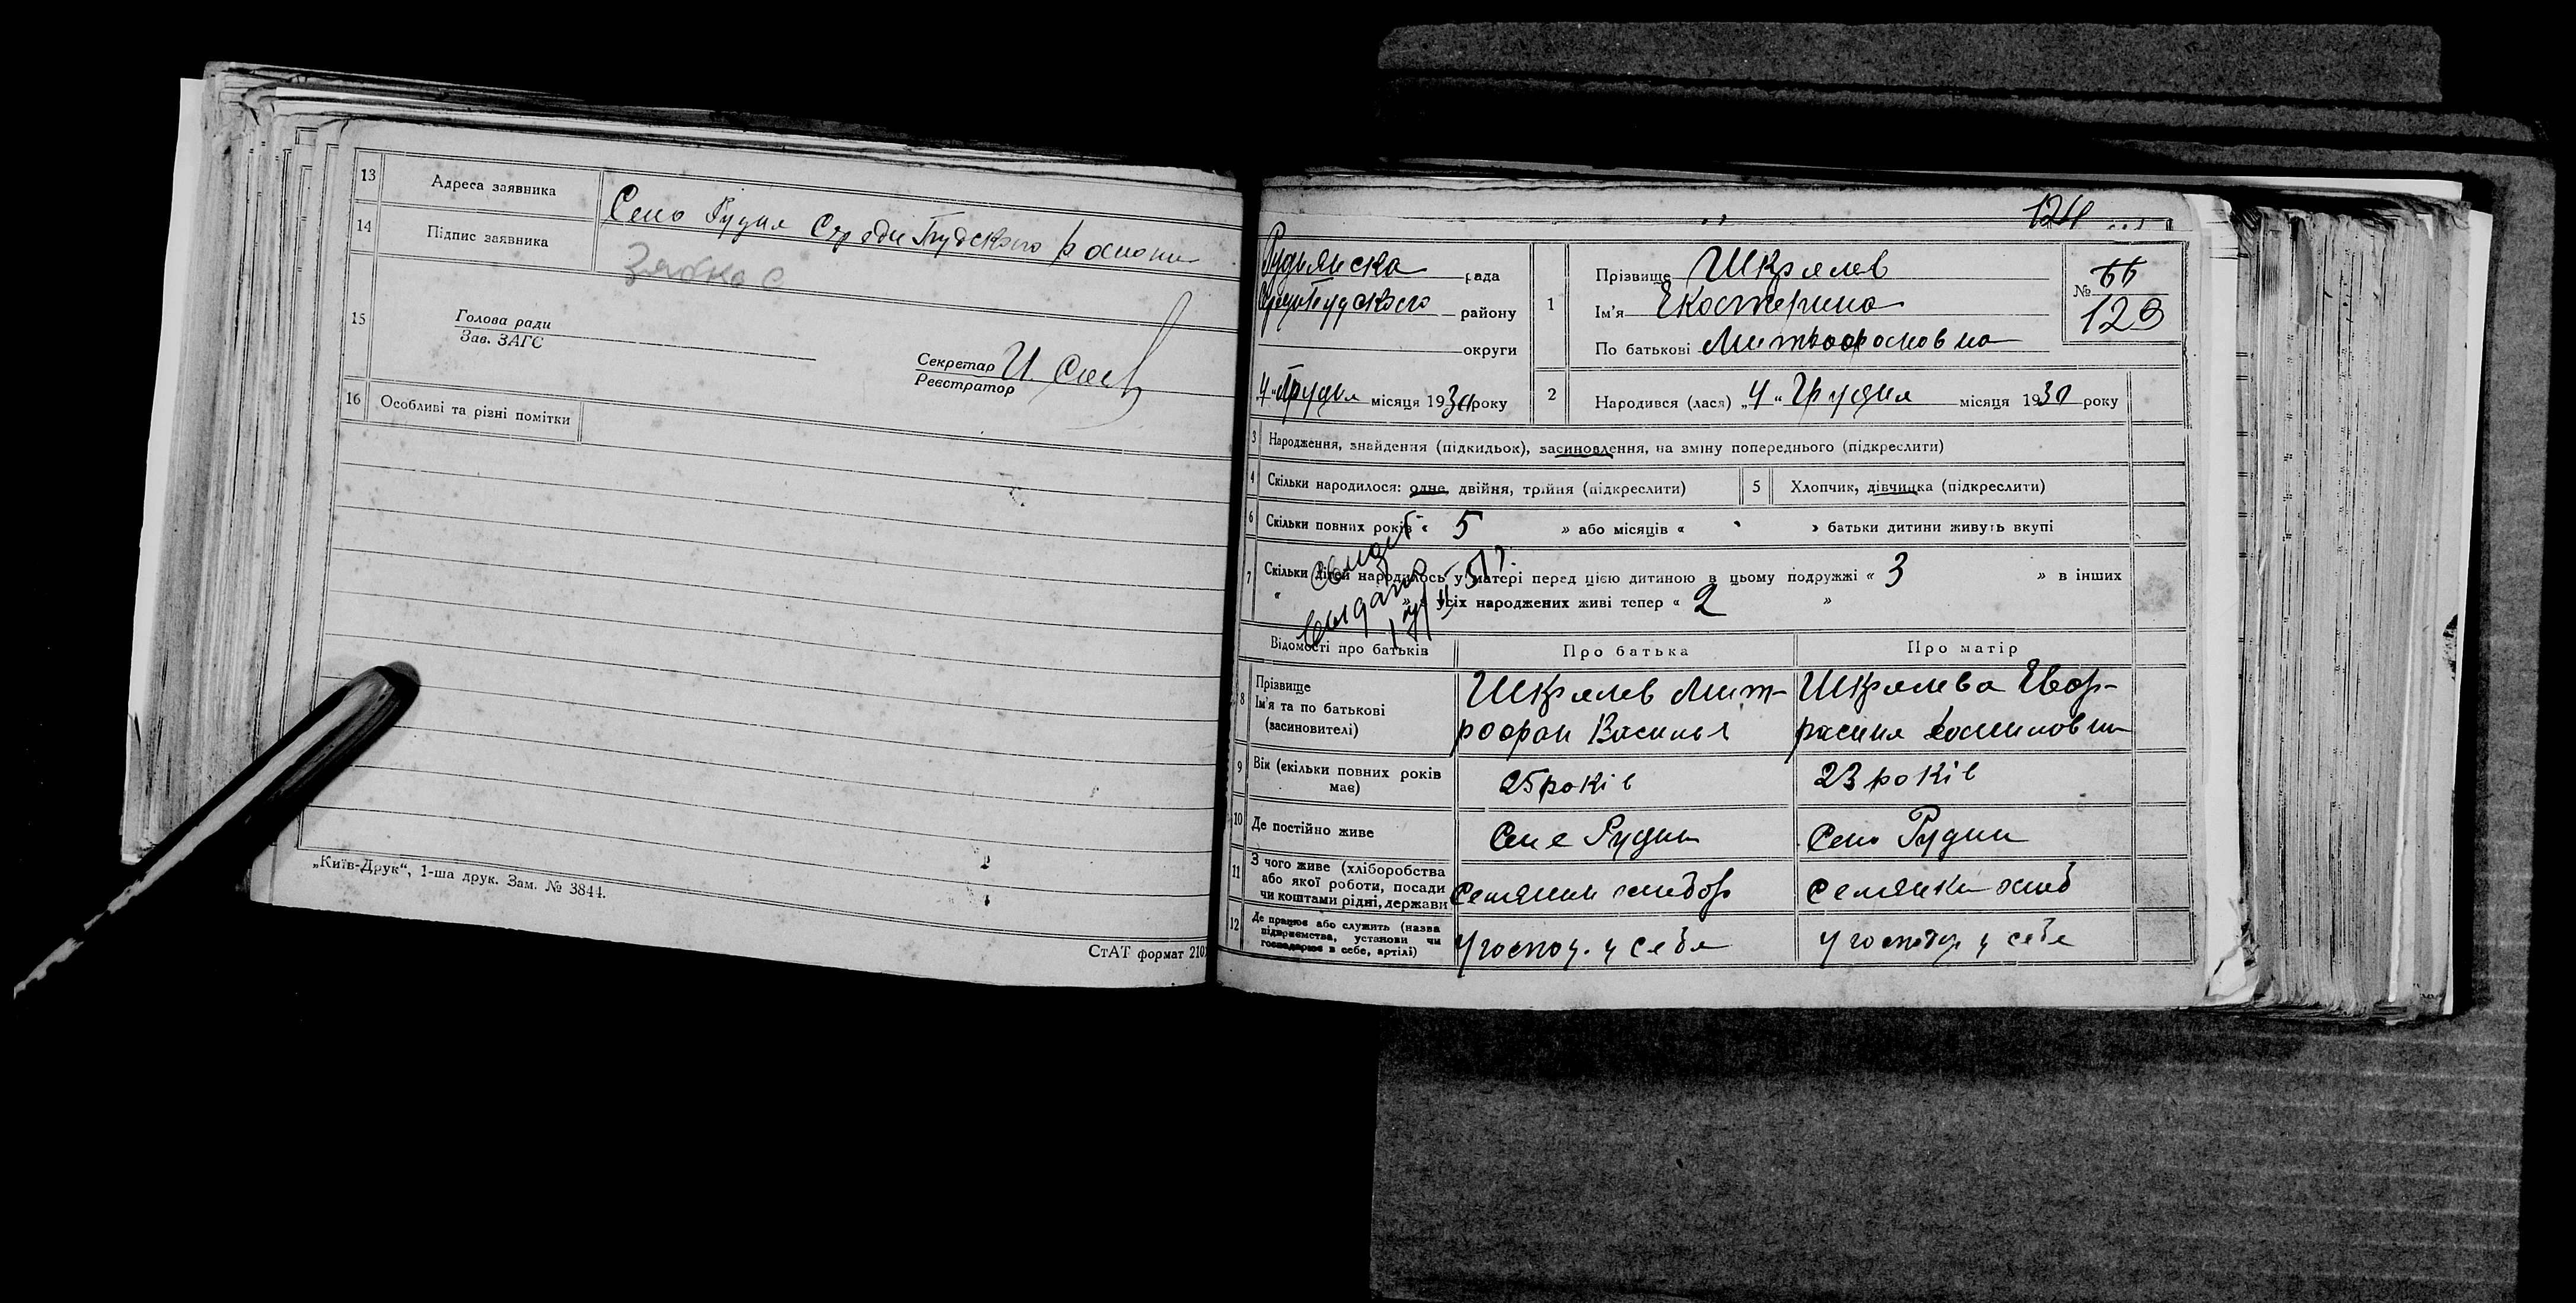 13 Адреса заявника Село Рудня
14 Підпис заявника
15 Голова ради
Зав. ЗАГС
Секретар И.
Реєстратор
16 Особливі та різні помітки
„Київ-Друк“, 1-ша друк. Зам. № 3844.
СтАТ формат 210
124
Рудьянска рада
району
округи
4 „Грудня місяця 1930 року
1 Прізвище Шкрялев
Ім'я Екатерина
По батькові Митрофановна
№ 66
123
2 Народився (лася) „4“ Грудня місяця 1930 року
3 Народження, знайдення (підкидьок), засиновлення, на зміну попереднього (підкреслити)
4 Скільки народилося: одне, двійня, трійня (підкреслити) 5 Хлопчик, дівчинка (підкреслити)
6 Скільки повних років « 5 » або місяців « » батьки дитини живуть вкупі
7 Скільки дітей народилось у матері перед цією дитиною в цьому подружжі « 3 » в інших
« » з усіх народжених живі тепер « 2 »
Відомості про батьків Про батька Про матір
8 Прізвище
Ім'я та по батькові
(засиновителі)
Шкрялев Мит-
рофан Василья
Шкрялева
9 Вік (скільки повних років має) 25 років 23 років
10 Де постійно живе Селе Рудни Село Рудни
11 З чого живе (хліборобства
або якої роботи, посади
чи коштами рідні, держави
12 Де працює або служить (назва
підприємства, установи чи
господарює в себе, артілі)
у господ. у себе у господ у себе